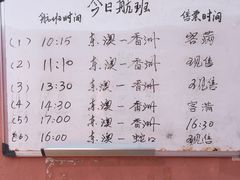 今日航班
航班时间 售票时间
(1) 10:15 东澳—香洲 客满
(2) 11:10 东澳—香洲 现售
(3) 13:30 东澳—香洲 现售
(4) 14:30 东澳—香洲 客满
(5) 17:00 东澳—香洲 16:30
(6) 16:00 东澳—蛇口 现售